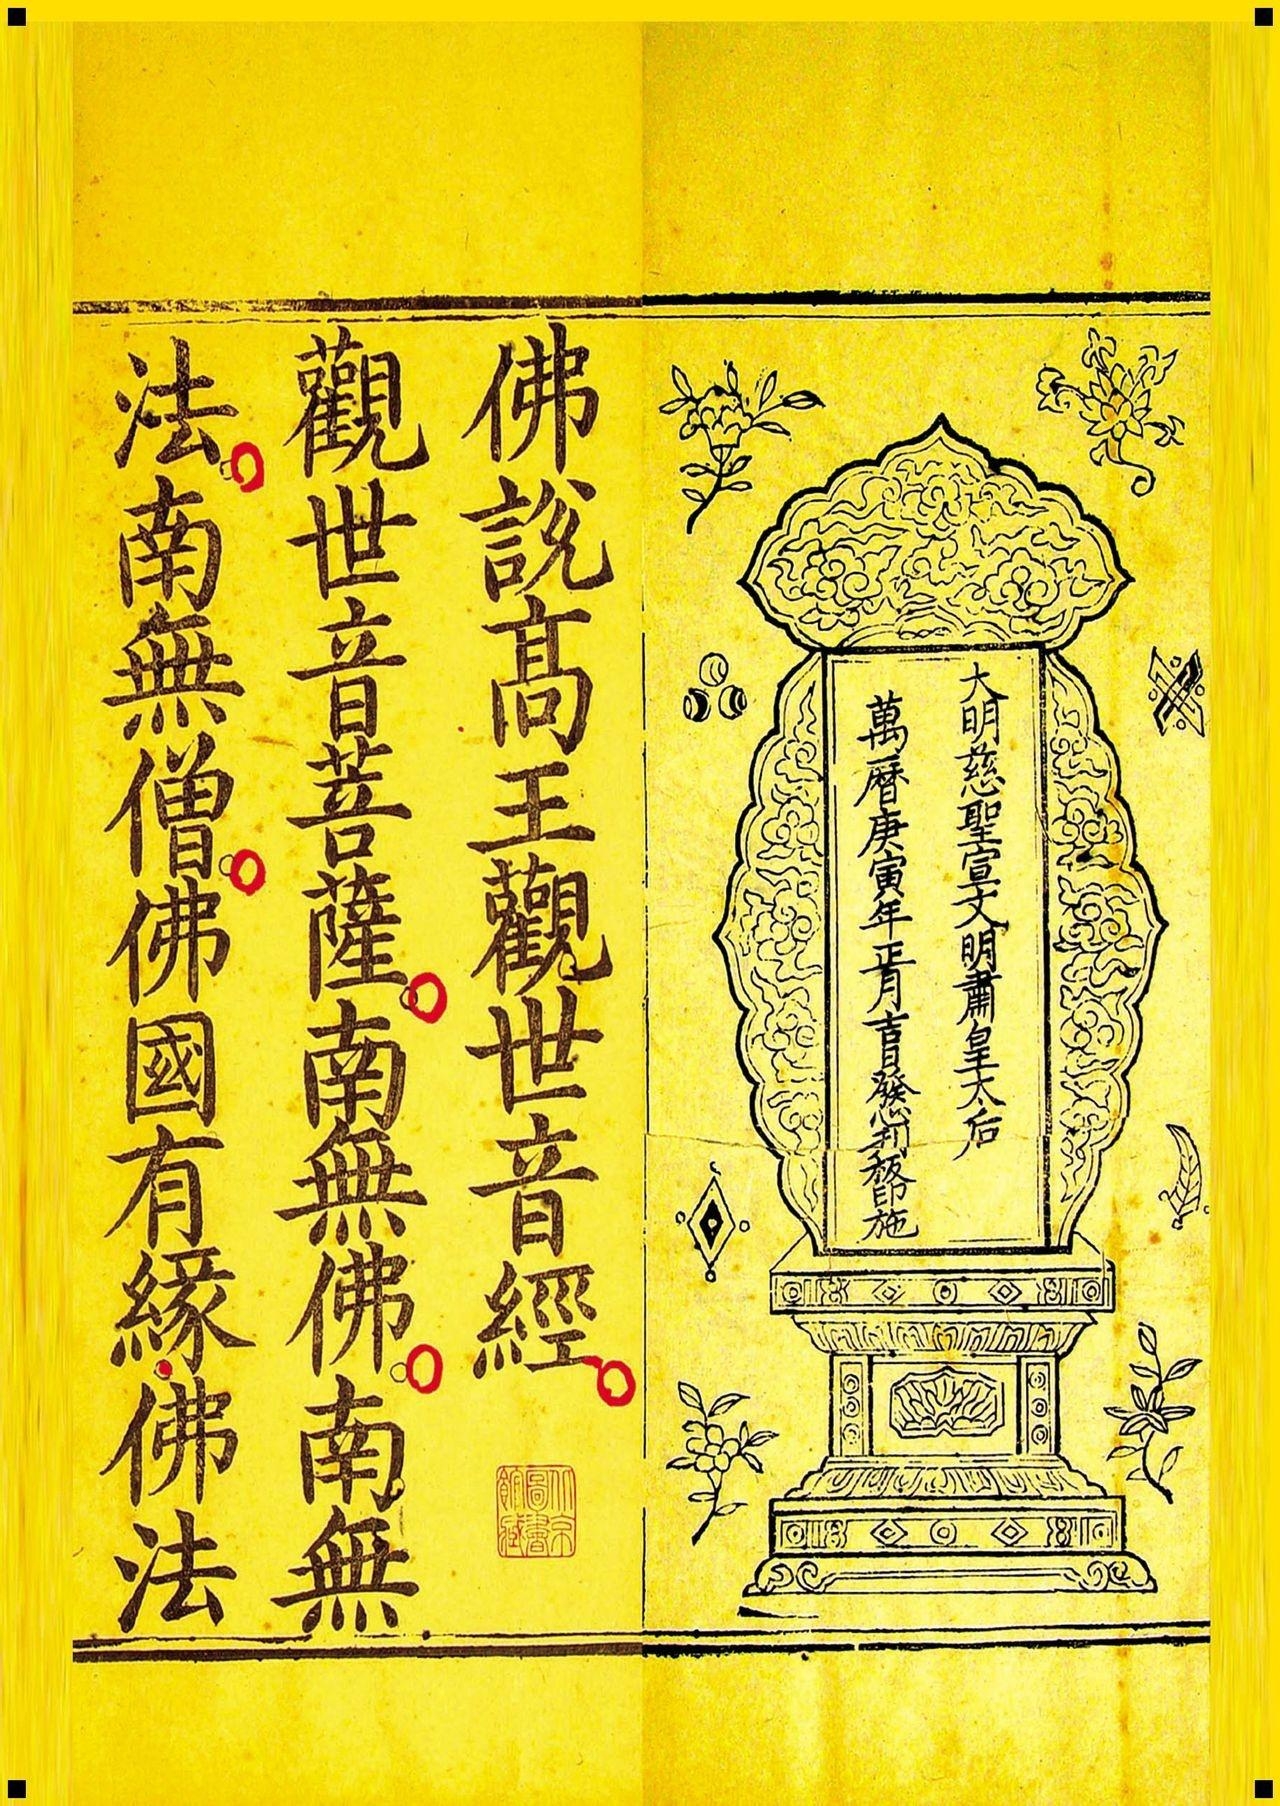 大明慈聖宣文明肅皇太后
萬曆庚寅年正月吉日發心刋板印施
佛說髙王觀世音經。
觀世音菩薩。南無佛。南無
法。南無僧。佛國有緣佛法
北京圖書館藏